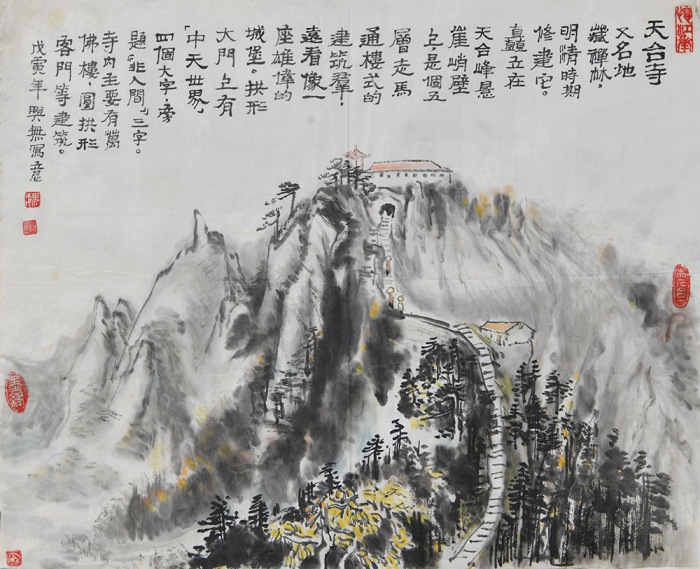 天台寺
又名地
藏禅林，
明清時期
修建它。
矗立在
天台峰懸
崖峭壁
上，是個五
層走馬
通樓式的
建筑羣！
遠看像一
座雄偉的
城堡。拱形
大門上有
"中天世界"
四個大字，旁
題"非人間"三字。
寺内主要有萬
佛樓，圓拱形
客門等建筑。
戊寅年 興無寫意